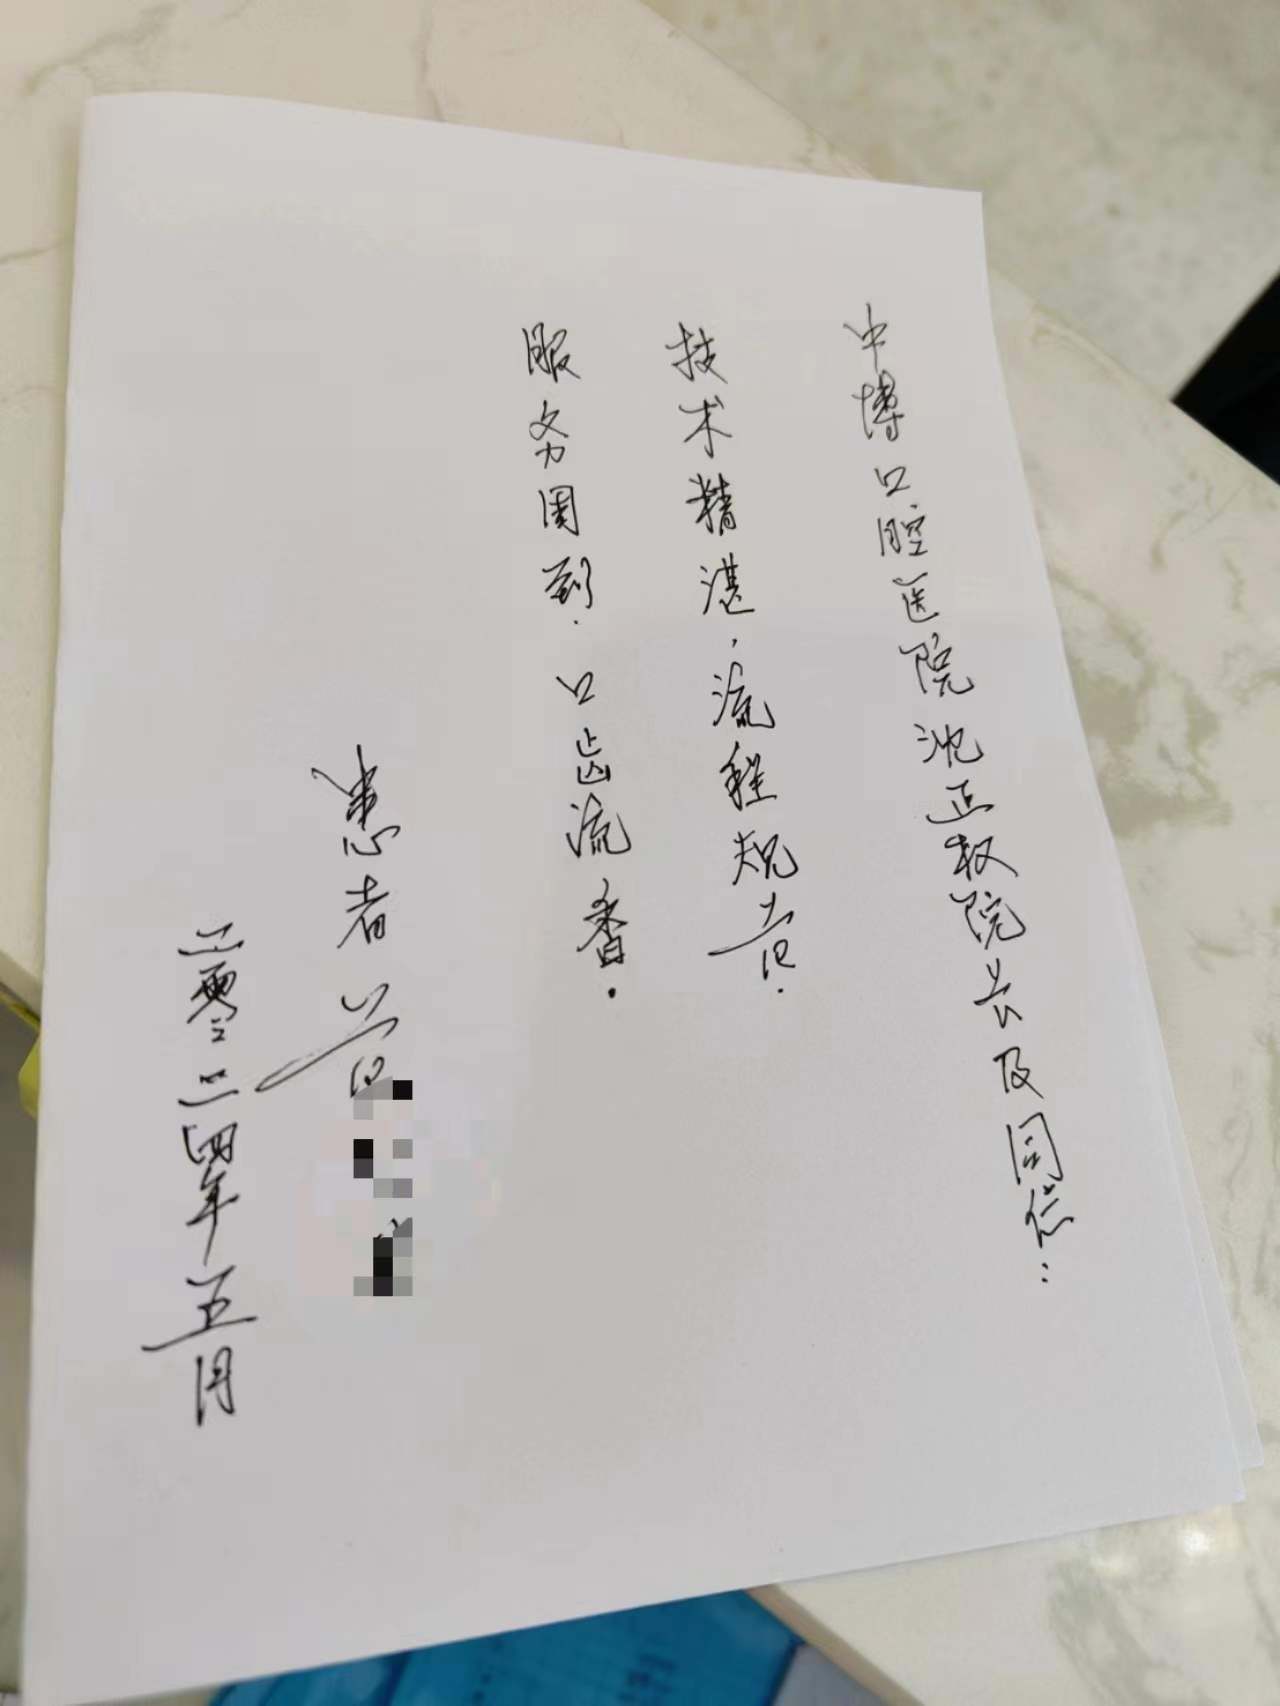 中博口腔医院沈正权院长及同仁：
技术精湛，流程规范.
服务周到.口齿流香.
患者 范
二零二四年五月